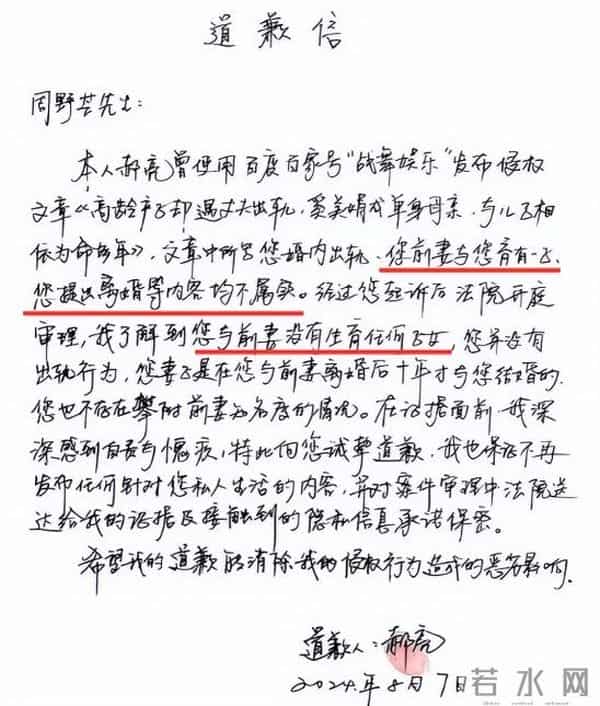 道歉信
周野芒先生：
本人郝亮曾使用百度百家号“战舞娱乐”发布侵权
文章《高龄产子却遇丈夫出轨，奚美娟成单身母亲，与儿子相
依为命多年》，文章中所写您婚内出轨、您前妻与您育有一子、
您提出离婚等内容均不属实。经过您起诉后法院开庭
审理，我了解到您与前妻没有生育任何子女，您并没有
出轨行为，您妻子是在您与前妻离婚后十年才与您结婚的，
您也不存在攀附前妻知名度的情况。在证据面前，我深
深感到自责与愧疚，特此向您诚挚道歉，我也保证不再
发布任何针对您私人生活的内容，并对案件审理中法院送
达给我的证据及接触到的隐私信息承诺保密。
希望我的道歉能消除我的侵权行为造成的恶劣影响。
道歉人：郝亮
2024年8月7日
若水网